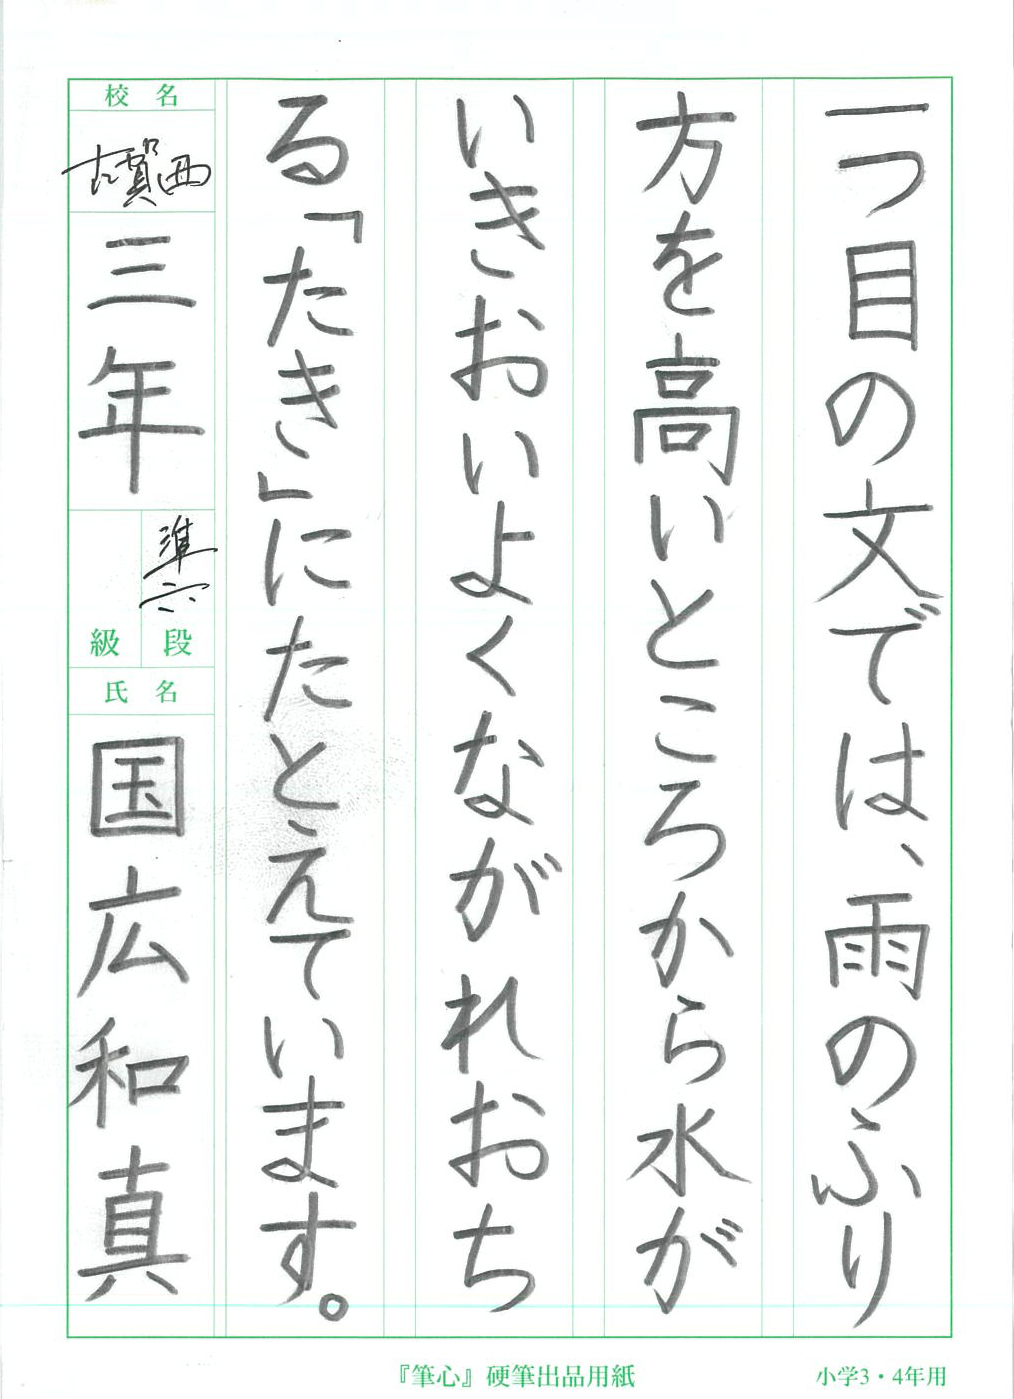 一つ目の文では、雨のふり
方を高いところから水が
いきおいよくながれおち
る「たき」にたとえています。
校名
古賀西
三年
準六
段
級
氏名
国広和真
『筆心』硬筆出品用紙
小学3・4年用